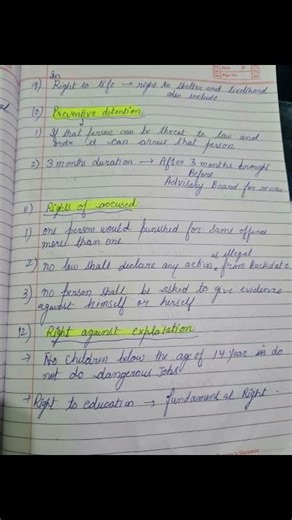 In
9) Right to life → right to shelter and livelihood
also include
10) Preventive detention
1) If that person can be threat to law and
order it can arrest that person
2) 3 months duration → After 3 months brought
Before
Advisory Board for review
11) Rights of accused
1) one person would punished for same offence
more than one
2) no law shall declare any action as illegal from Backdate
3) no person shall be asked to give evidence
against himself or herself.
12) Right against exploitation
→ No children below the age of 14 year is do
not do dangerous Jobs
→ Right to education → fundamental Right.